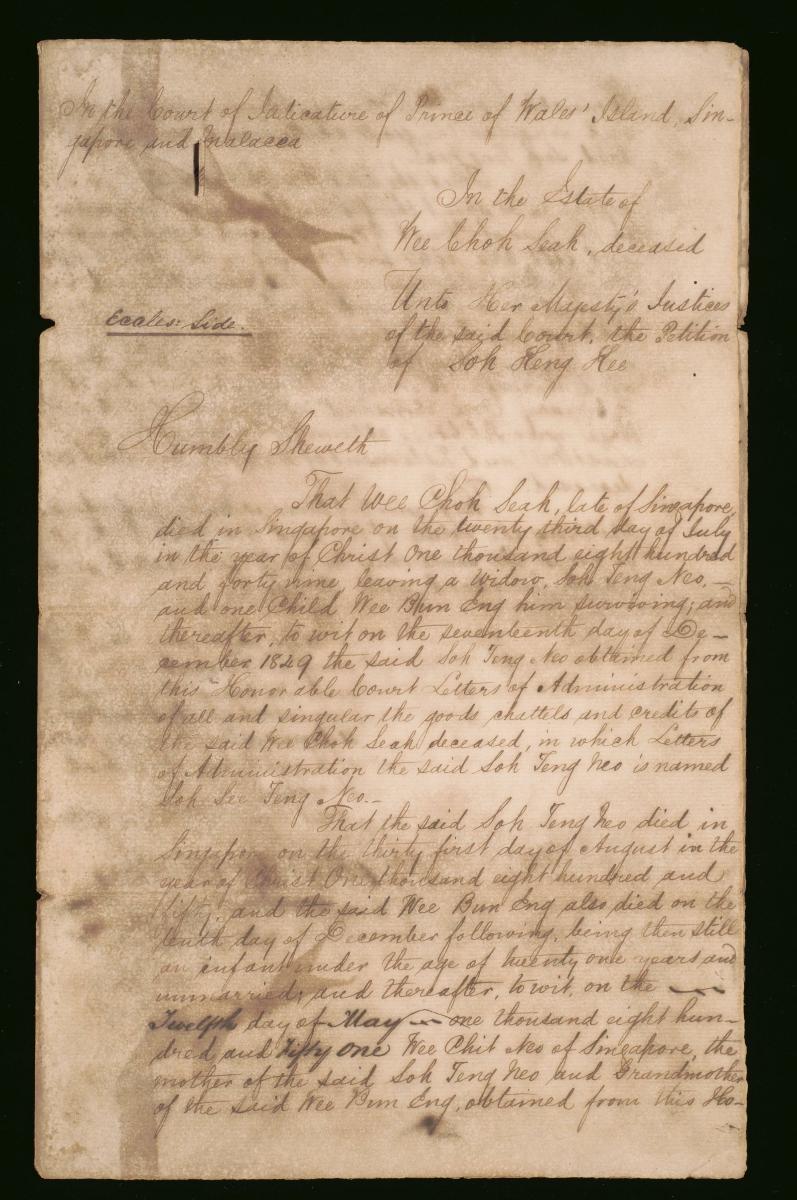 In the Court of Judicature of Prince of Wales' Island, Sin-
gapore and Malacca
In the Estate of
Wee Choh Seah, deceased
Unto Her Majesty's Justices
of the said Court, the Petition
of Soh Heng Kee
Eccles: Side.
Humbly Sheweth
That Wee Choh Seah, late of Singapore,
died in Singapore on the twenty third day of July
in the year of Christ One thousand eight hundred
and forty nine, leaving a widow, Soh Teng Neo,—
and one Child Wee Bun Eng him surviving; and
thereafter, to wit on the seventeenth day of De-
cember 1849 the said Soh Teng Neo obtained from
this Honorable Court Letters of Administration
of all and singular the goods chattels and credits of
the said Wee Choh Seah deceased, in which Letters
of Administration the said Soh Teng Neo is named
Soh See Teng Neo.—
That the said Soh Teng Neo died in
Singapore on the thirty first day of August in the
year of Christ One thousand eight hundred and
fifty, and the said Wee Bun Eng also died on the
tenth day of December following, being then still
an infant under the age of twenty one years and
unmarried; and thereafter, to wit, on the —
Twelfth day of May — one thousand eight hun-
dred and Fifty One Wee Chit Neo of Singapore, the
mother of the said Soh Teng Neo and Grandmother
of the said Wee Bun Eng, obtained from this Ho-